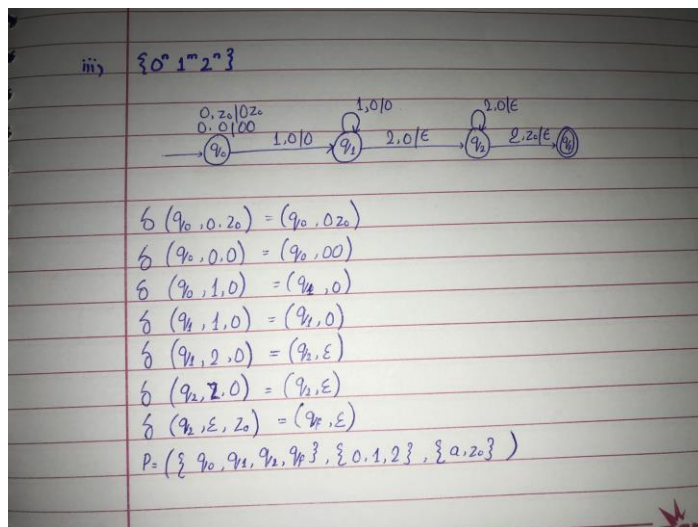 iii) {0ⁿ 1ᵐ 2ⁿ}
0,z₀|0z₀
0,0|00
1,0|0
1,0|0
2,0|ε
2,0|ε
ε,z₀|ε
q₀
q₁
q₂
qf
δ (q₀, 0, z₀) = (q₀, 0z₀)
δ (q₀, 0,0) = (q₀, 00)
δ (q₀, 1,0) = (q₁, 0)
δ (q₁, 1,0) = (q₁, 0)
δ (q₁, 2,0) = (q₂, ε)
δ (q₂, 2,0) = (q₂, ε)
δ (q₂, ε, z₀) = (qf, ε)
P = ({q₀, q₁, q₂, qf}, {0,1,2}, {a,z₀})